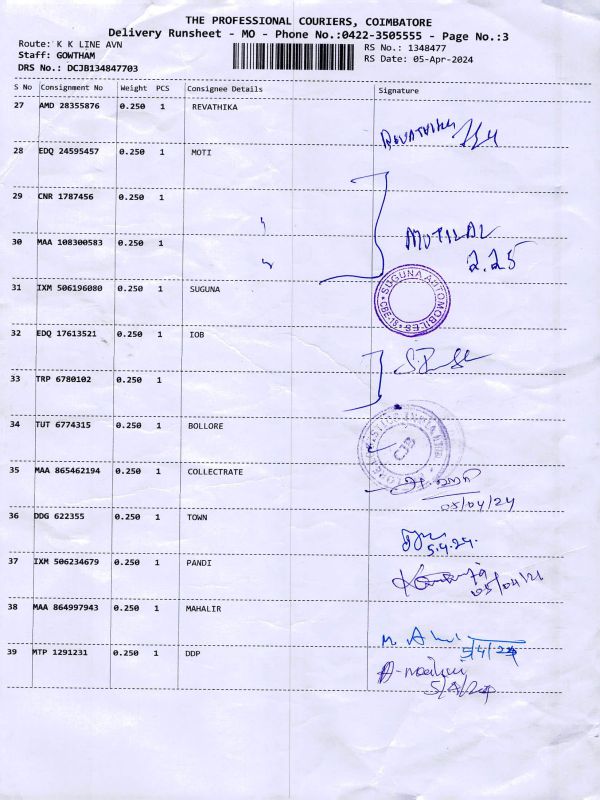 THE PROFESSIONAL COURIERS, COIMBATORE
Delivery Runsheet - MO - Phone No.:0422-3505555 - Page No.:3
Route: K K LINE AVN
RS No.: 1348477
Staff: GOWTHAM
RS Date: 05-Apr-2024
DRS No.: DCJB134847703
S No Consignment No Weight PCS Consignee Details Signature
27 AMD 28355876 0.250 1 REVATHIKA
REVATHIKA
28 EDQ 24595457 0.250 1 MOTI
29 CNR 1787456 0.250 1
MOTILAL
30 MAA 108300583 0.250 1
2.25
31 IXM 506196080 0.250 1 SUGUNA
SUGUNA AUTOMOBILES CBE-18
32 EDQ 17613521 0.250 1 IOB
33 TRP 6780102 0.250 1
34 TUT 6774315 0.250 1 BOLLORE
CJB
35 MAA 865462194 0.250 1 COLLECTRATE
05/04/24
36 DDG 622355 0.250 1 TOWN
5.4.24.
37 IXM 506234679 0.250 1 PANDI
38 MAA 864997943 0.250 1 MAHALIR
5/4/24
39 MTP 1291231 0.250 1 DDP
5/4/24